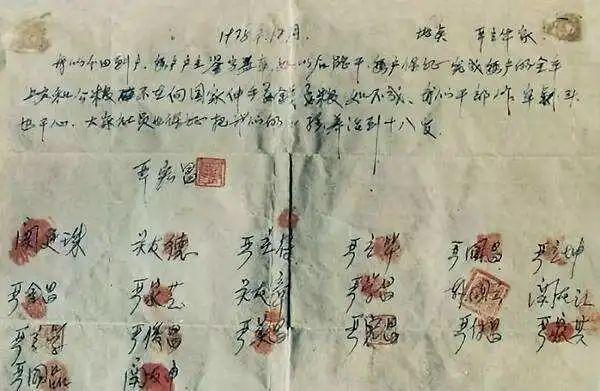 1978年12月. 地点 严立华家
我们分田到户,每户户主签字盖章,如以后能干,每户保证完成每户的全年
上交和公粮 不在向国家伸手要钱要粮,如不成,我们干部作牢刹头
也干心,大家社员也保证把我们的小孩养活到十八岁.
严宏昌
关廷珠 关友德 严立付 严立华 严国昌 严立坤
严金昌 严家芝 关友章 严学昌 韩国云 关友江
严立学 严俊昌 严美昌 严宏昌 严付昌 严家其
严国品 关友申